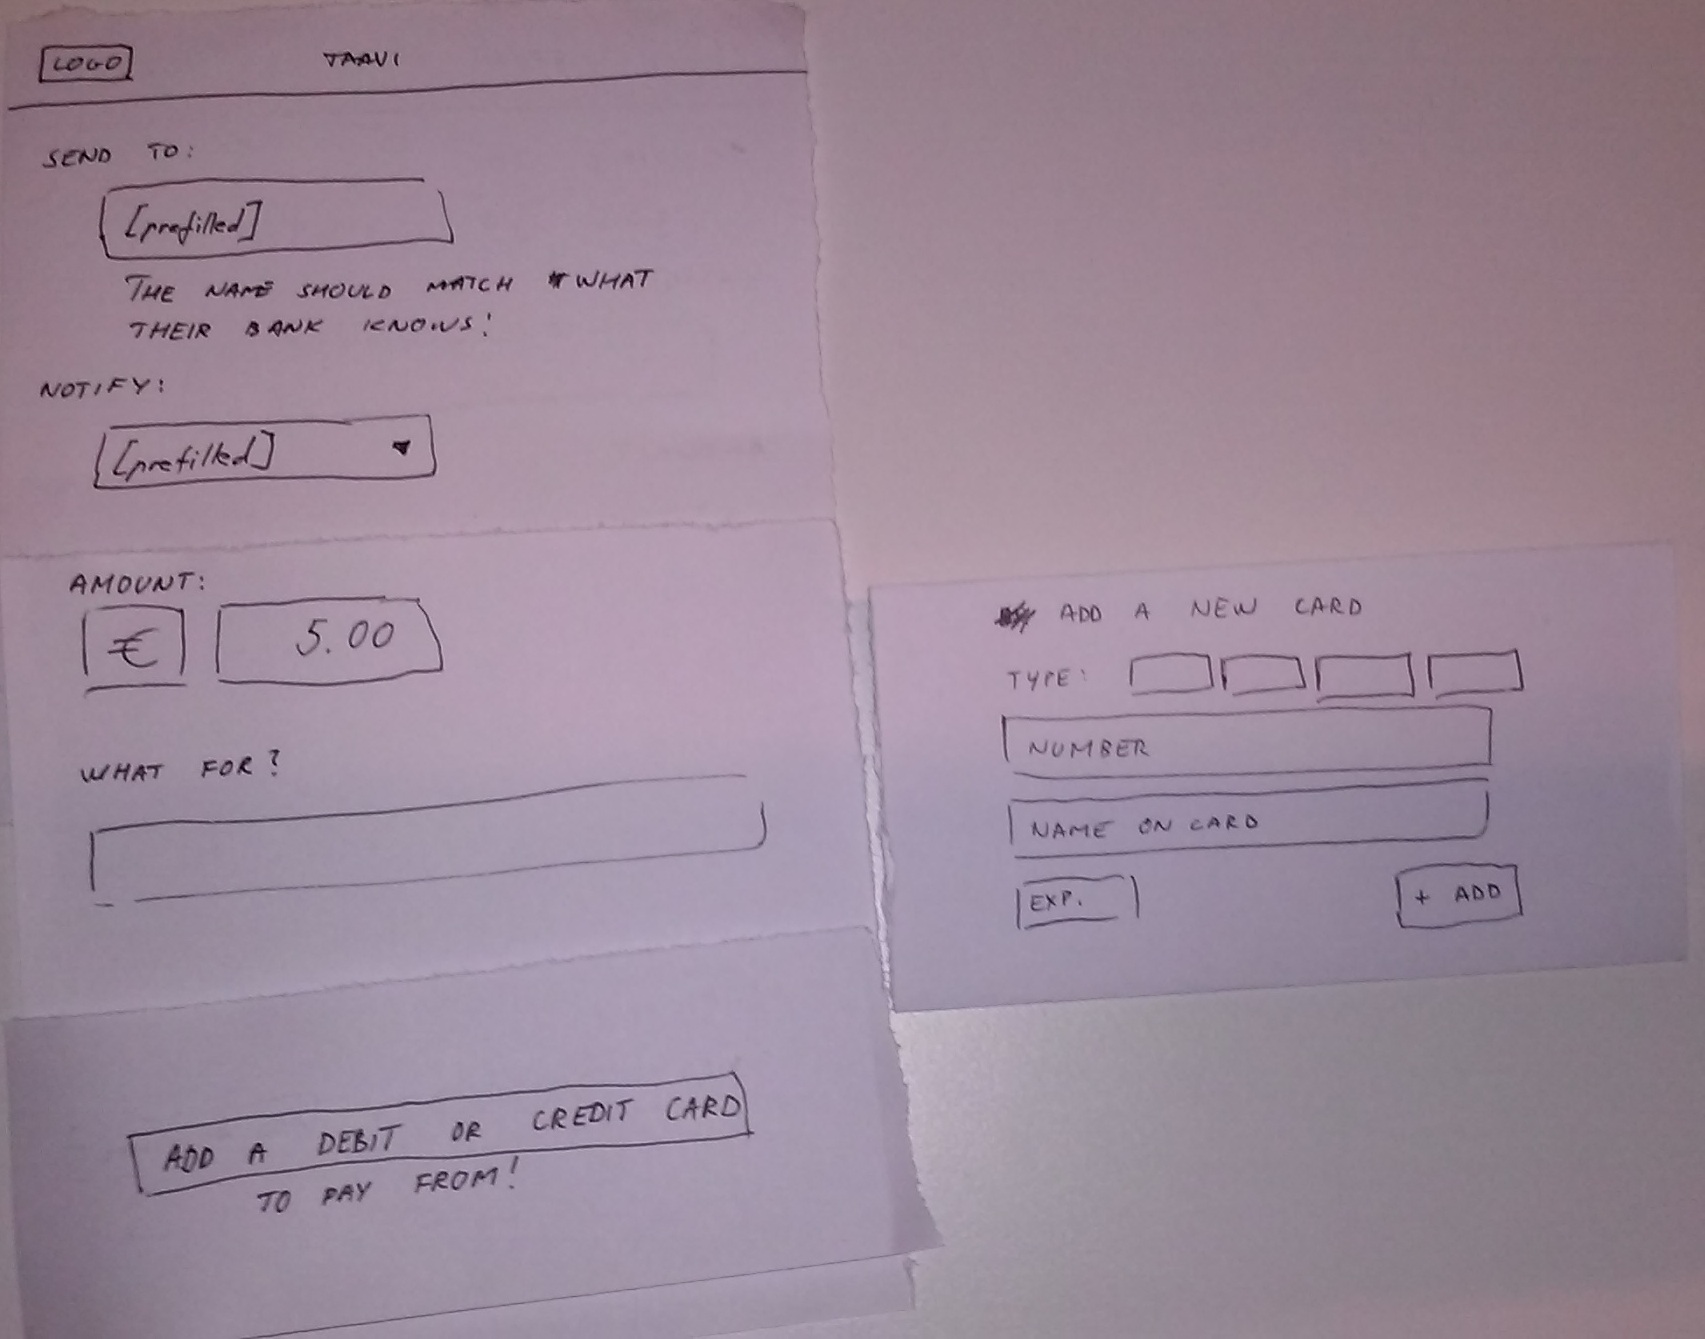 LOGO
TAAVI
SEND TO:
[prefilled]
THE NAME SHOULD MATCH WHAT
THEIR BANK KNOWS!
NOTIFY:
[prefilled]
AMOUNT:
€ 5.00
WHAT FOR?
ADD A DEBIT OR CREDIT CARD
TO PAY FROM!
ADD A NEW CARD
TYPE:
NUMBER
NAME ON CARD
EXP.
+ ADD